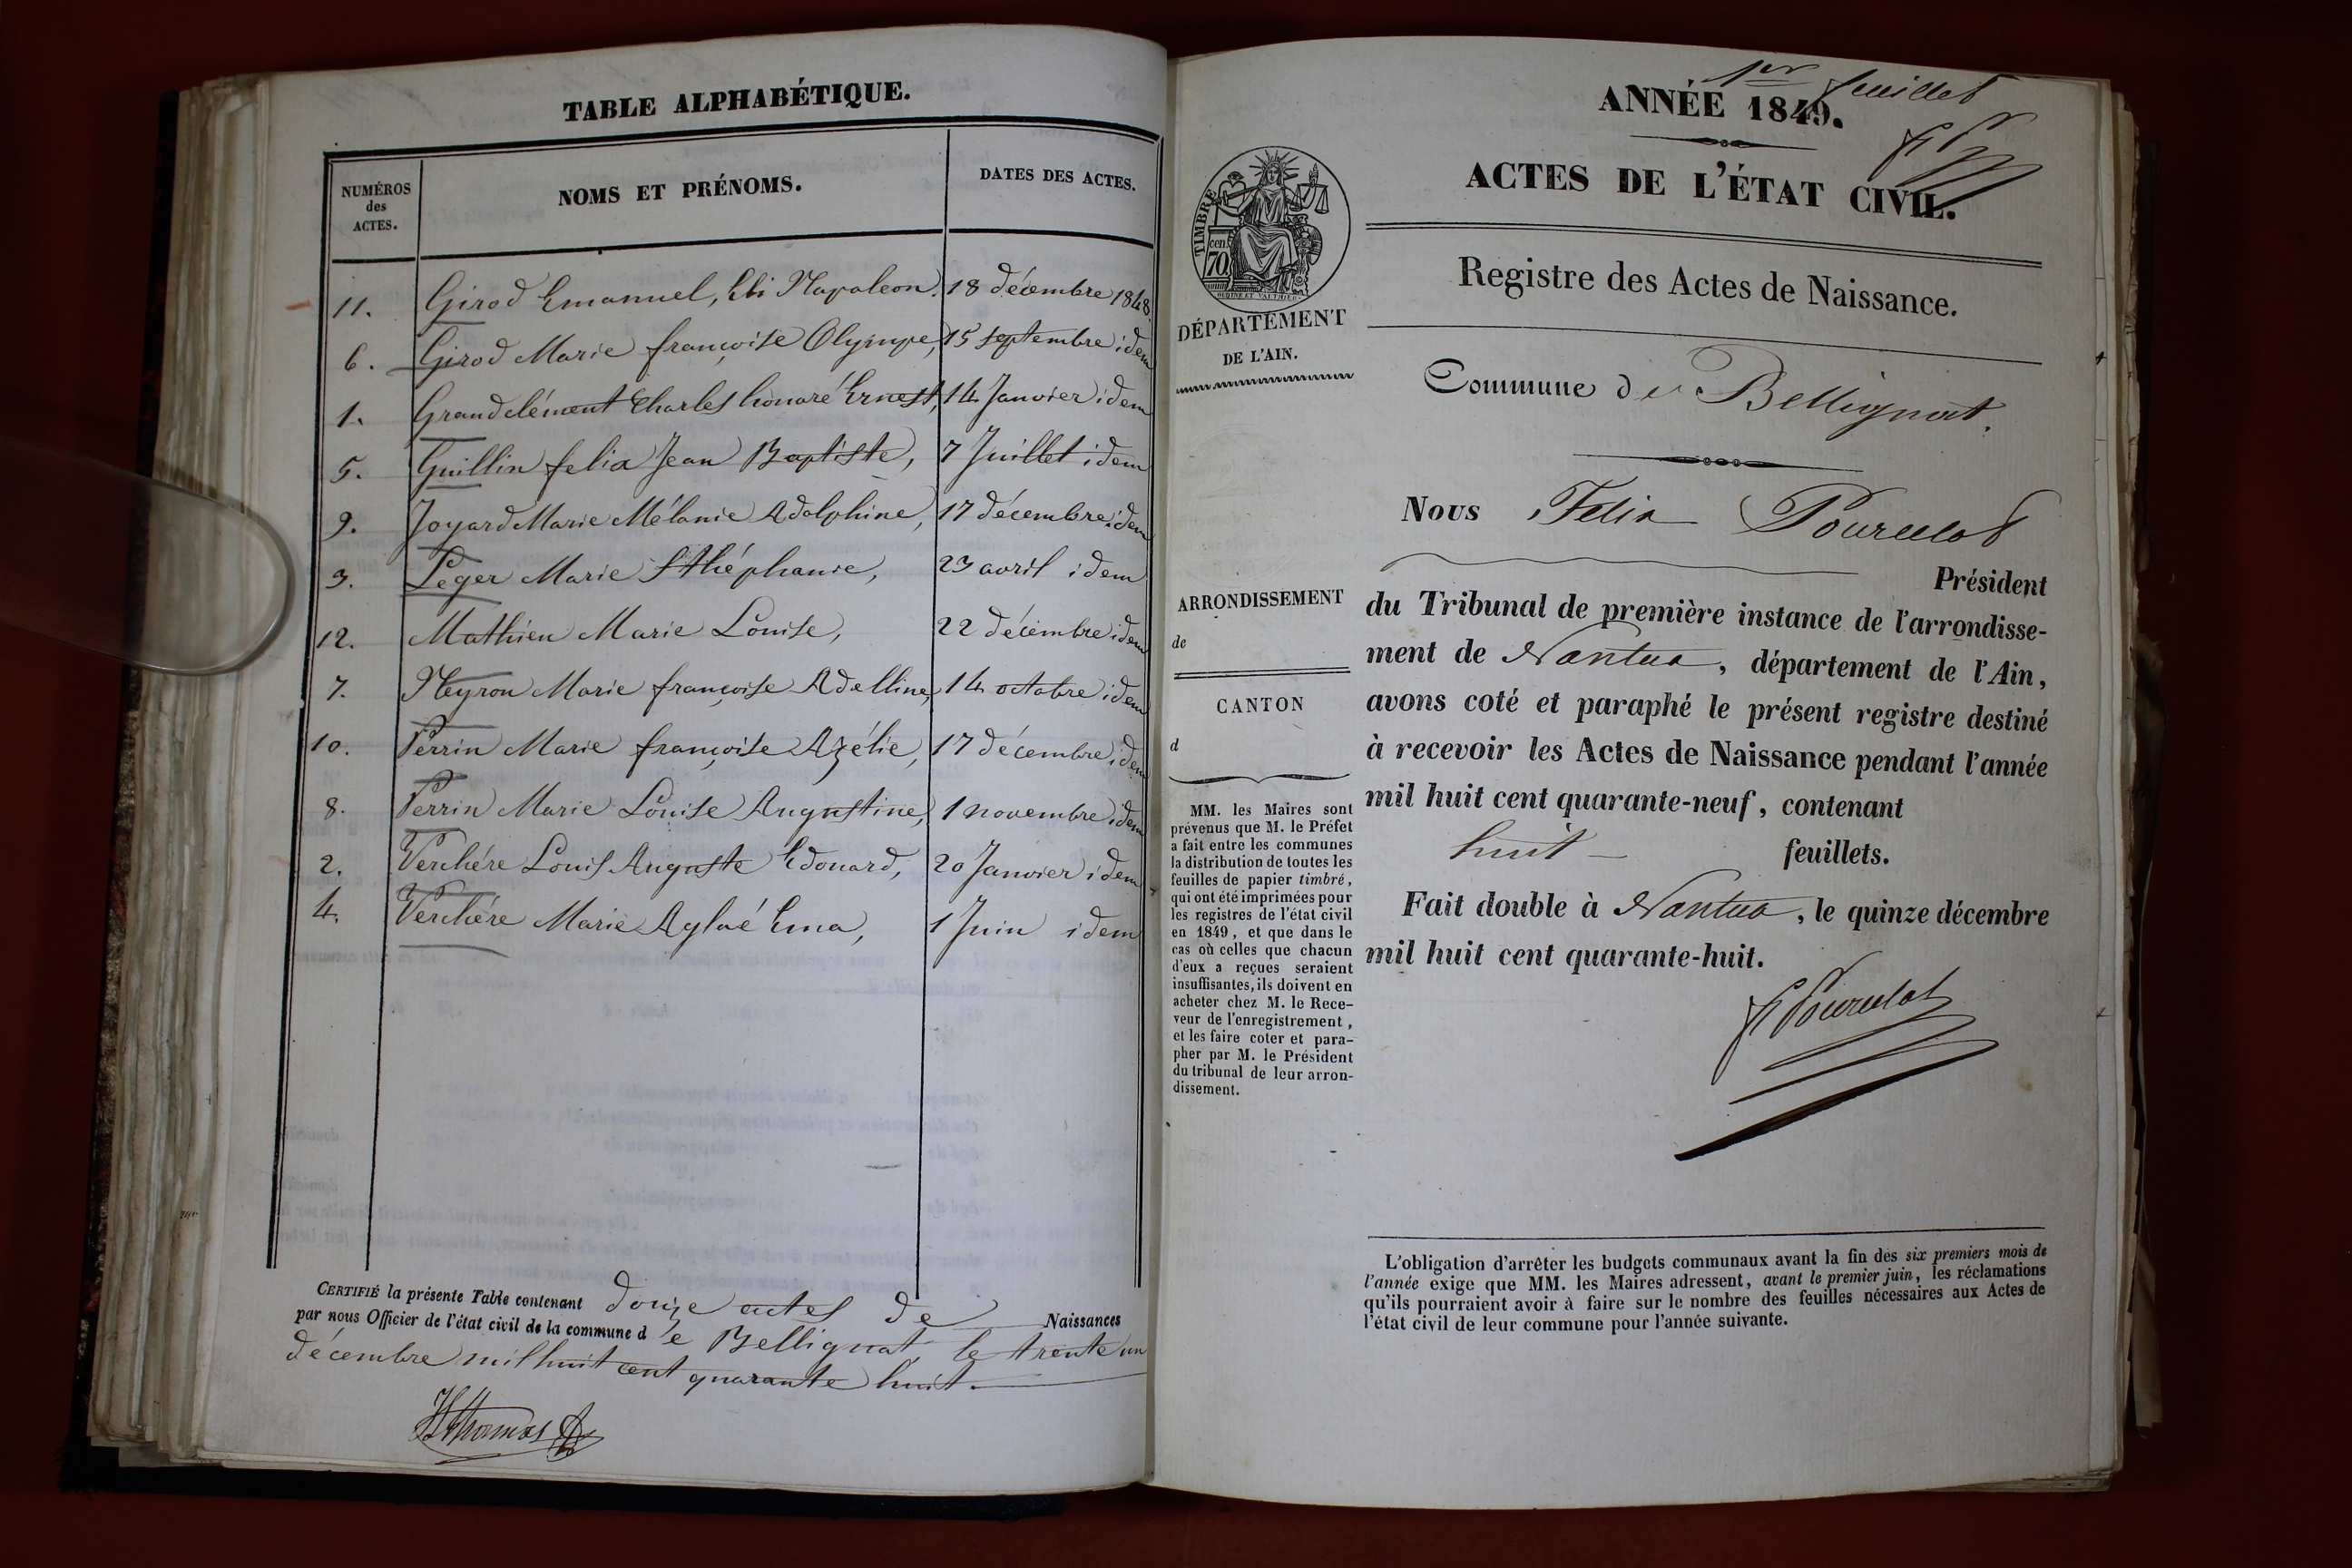 TABLE ALPHABÉTIQUE.
NUMÉROS
des
ACTES.
NOMS ET PRÉNOMS.
DATES DES ACTES.
11. Girod Emanuel, Eli Napoleon. 18 décembre 1848.
6. Girod Marie françoise Olympe, 15 septembre idem
1. Grandclément Charles honoré Ernest, 14 Janvier idem
5. Guillin felix Jean Baptiste, 7 Juillet idem
9. Joyard Marie Mélanie Adolphine, 17 décembre idem
3. Léger Marie Sthéphanie, 23 avril idem
12. Mathieu Marie Louise, 22 décembre idem
7. Neyron Marie françoise Adelline, 14 octobre idem
10. Perrin Marie françoise Azélie, 17 décembre idem
8. Perrin Marie Louise Augustine, 1 novembre idem
2. Verchére Louis Auguste Edouard, 20 Janvier idem
4. Verchére Marie Aglaé Ema, 1 Juin idem
CERTIFIÉ la présente Table contenant douze actes de Naissances
par nous Officier de l'état civil de la commune de Bellignat, le trente un
décembre mil huit cent quarante huit.
1er feuillet
ANNÉE 1849.
ACTES DE L'ÉTAT CIVIL.
TIMBRE
70
cen.
DÉPARTEMENT
DE L'AIN.
Registre des Actes de Naissance.
Commune de Bellignat.
Nous Felix Pourcelot
Président
du Tribunal de première instance de l'arrondisse-
ment de Nantua, département de l'Ain,
avons coté et paraphé le présent registre destiné
à recevoir les Actes de Naissance pendant l'année
mil huit cent quarante-neuf, contenant
huit feuillets.
Fait double à Nantua, le quinze décembre
mil huit cent quarante-huit.
F Pourcelot
ARRONDISSEMENT
de
CANTON
d
MM. les Maires sont
prévenus que M. le Préfet
a fait entre les communes
la distribution de toutes les
feuilles de papier timbré,
qui ont été imprimées pour
les registres de l'état civil
en 1849, et que dans le
cas où celles que chacun
d'eux a reçues seraient
insuffisantes, ils doivent en
acheter chez M. le Rece-
veur de l'enregistrement,
et les faire coter et para-
pher par M. le Président
du tribunal de leur arron-
dissement.
L'obligation d'arrêter les budgets communaux avant la fin des six premiers mois de
l'année exige que MM. les Maires adressent, avant le premier juin, les réclamations
qu'ils pourraient avoir à faire sur le nombre des feuilles nécessaires aux Actes de
l'état civil de leur commune pour l'année suivante.